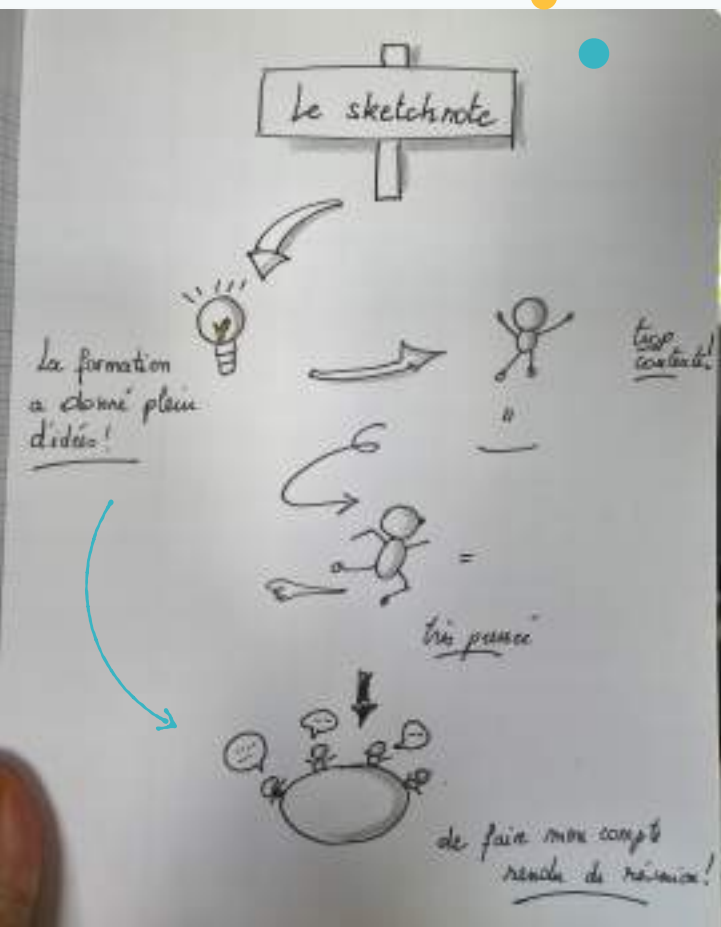 Le sketchnote
La formation
a donné plein
d'idées!
trop
contente!
"
=
très pressé
de faire mon compte
rendu de réunion!